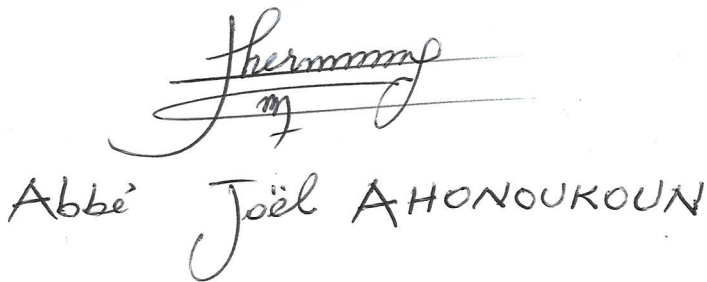 Abbé Joël AHONOUKOUN